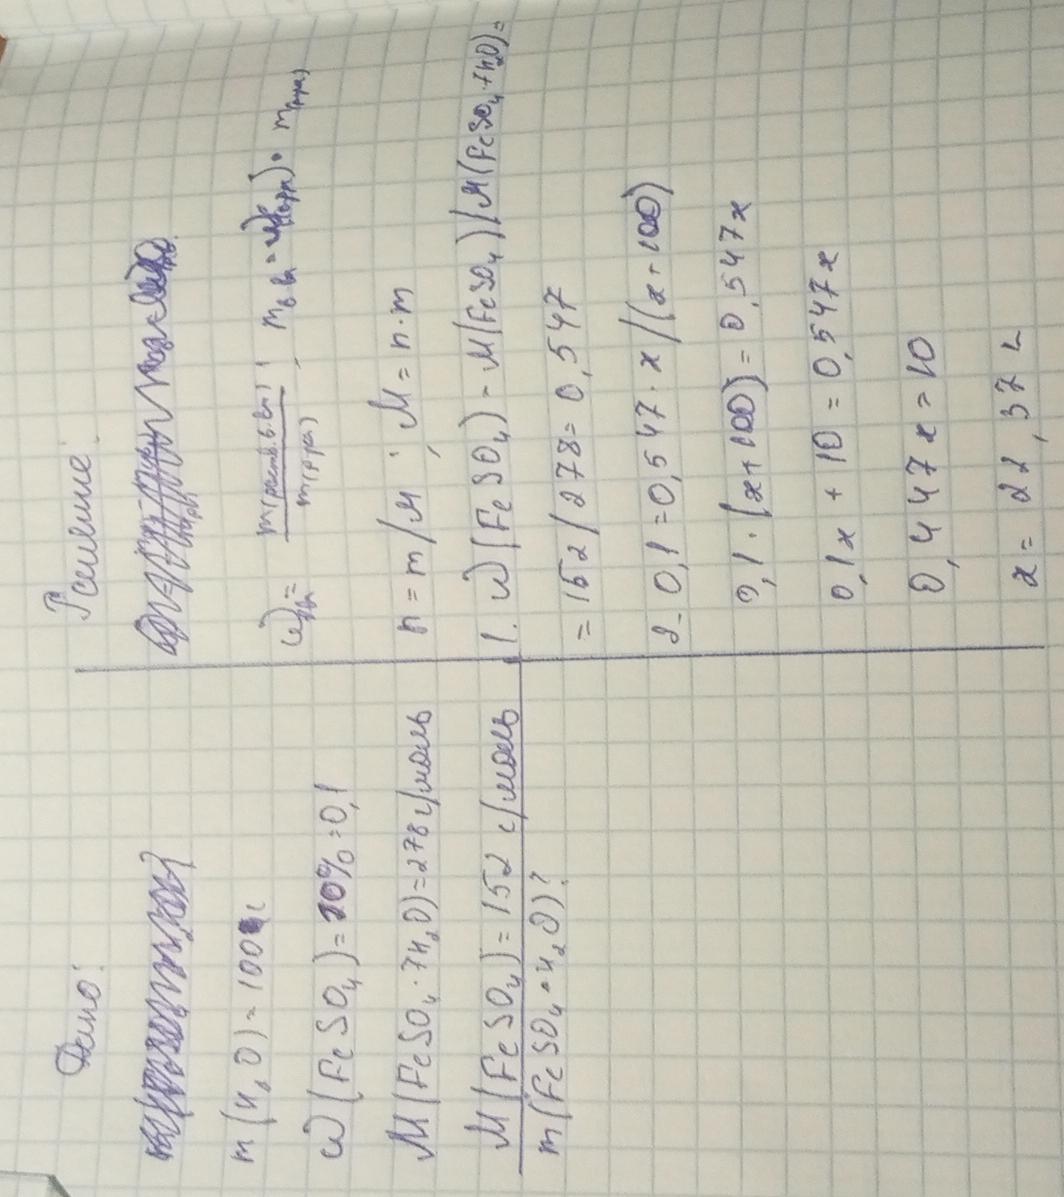 Дано:
m(H₂O)=100г
ω(FeSO₄)=10%=0,1
M(FeSO₄·7H₂O)=278г/моль
M(FeSO₄)=152 г/моль
m(FeSO₄·H₂O)?
Решение:
n=m/M; M=n·m
1. ω(FeSO₄)=M(FeSO₄)/M(FeSO₄·7H₂O)=
=152/278=0,547
2. 0,1=0,547·x/(x+100)
0,1·(x+100)=0,547x
0,1x+10=0,547x
0,447x=10
x=22,37г